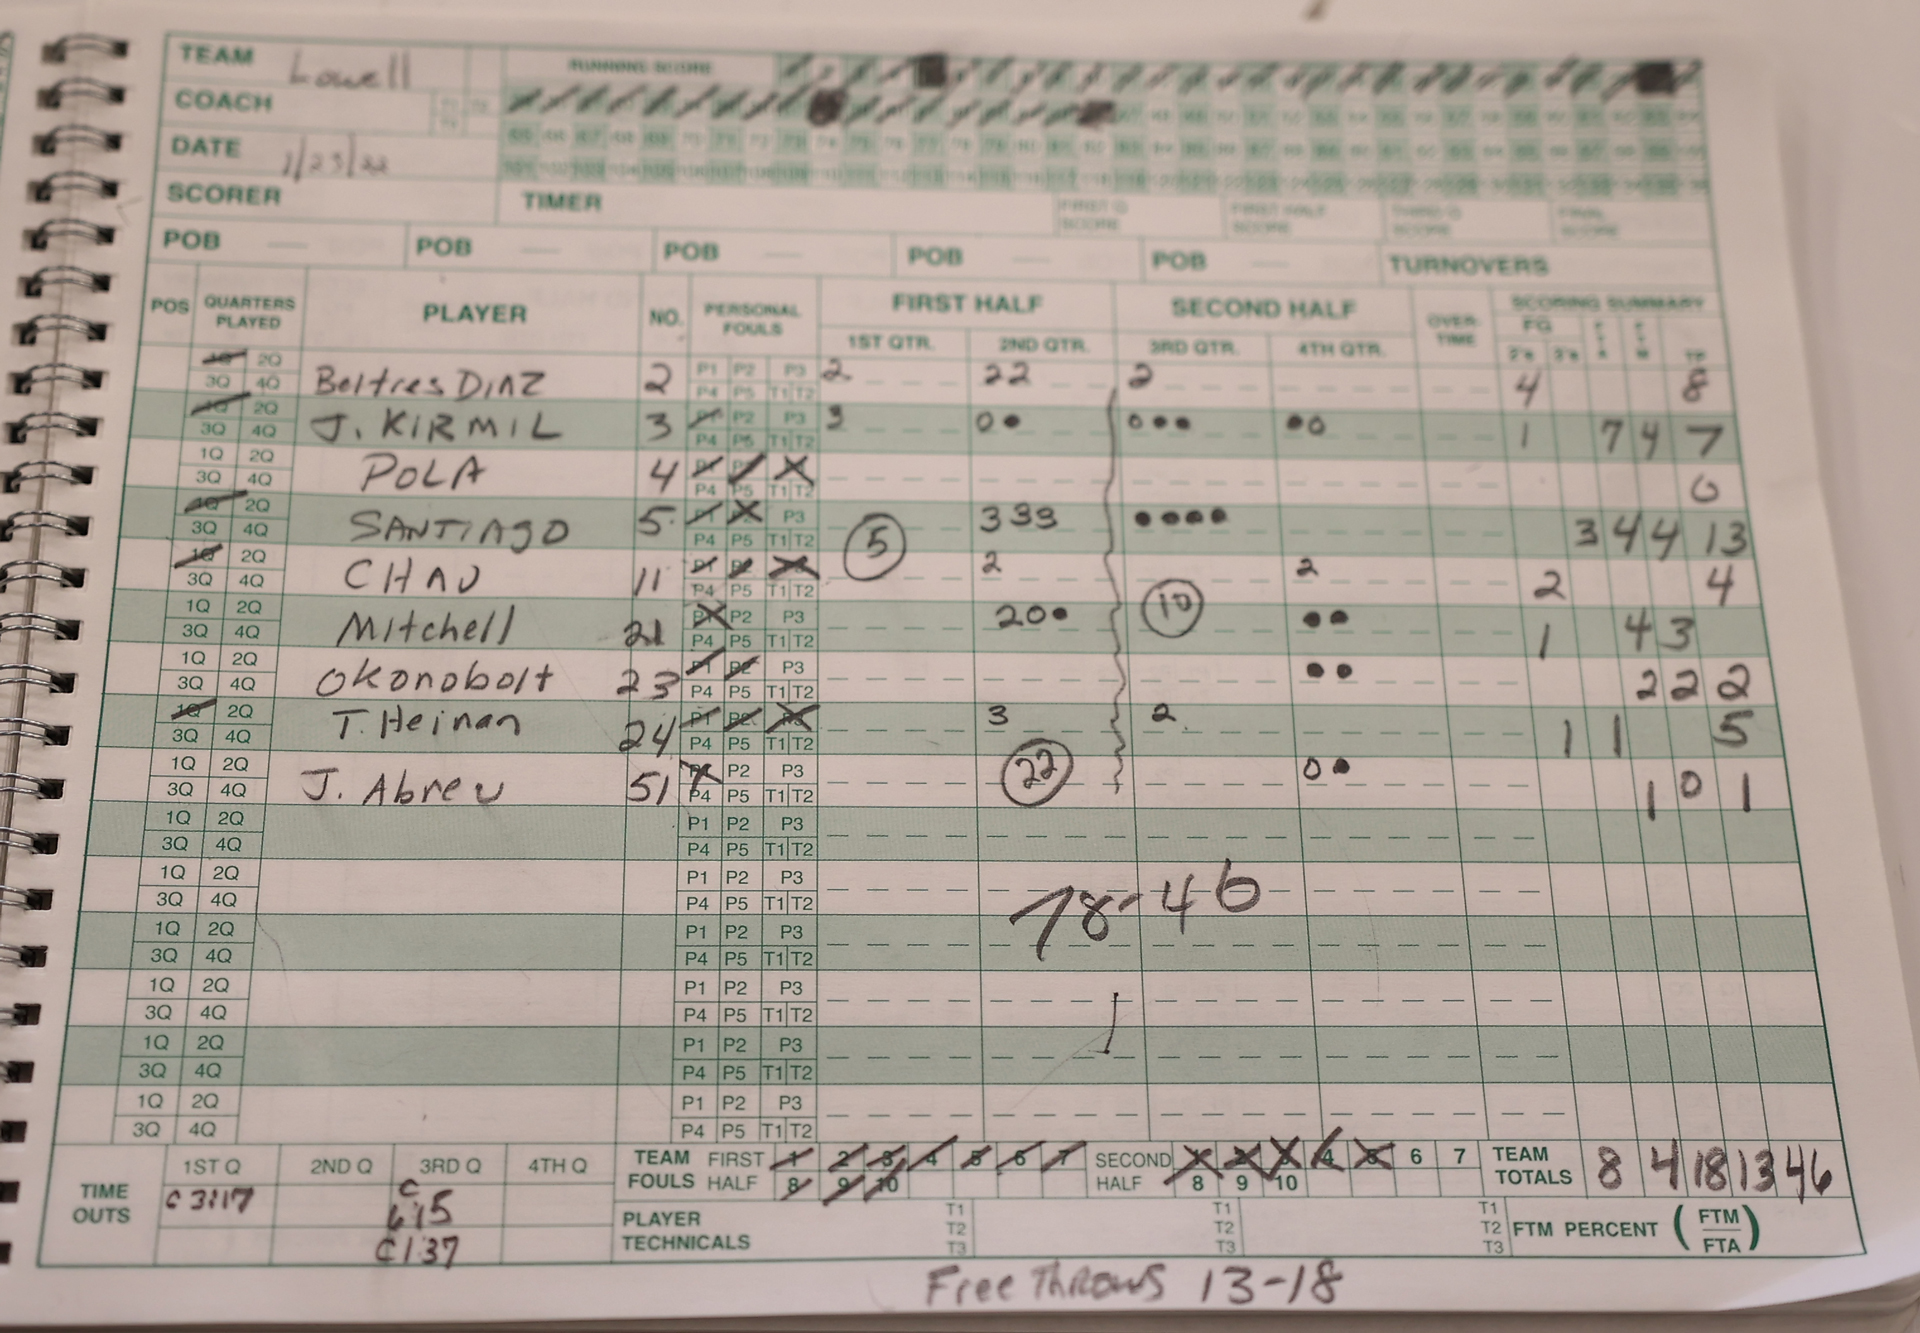 TEAM Lowell RUNNING SCORE
COACH
DATE 1/25/22
SCORER TIMER FIRST Q SCORE FIRST HALF SCORE THIRD Q SCORE FINAL SCORE
POB POB POB POB POB TURNOVERS
POS QUARTERS PLAYED PLAYER NO. PERSONAL FOULS FIRST HALF SECOND HALF OVER-TIME SCORING SUMMARY
1ST QTR. 2ND QTR. 3RD QTR. 4TH QTR. FG 2's 3's FTA FTM TP
1Q 2Q P1 P2 P3
3Q 4Q Beltres DIAZ 2 P4 P5 T1 T2 2 22 2 4 8
1Q 2Q P1 P2 P3
3Q 4Q J. KIRMIL 3 P4 P5 T1 T2 3 0● 0●● ●0 1 7 4 7
1Q 2Q P1 P2 P3
3Q 4Q POLA 4 P4 P5 T1 T2 0
1Q 2Q P1 P2 P3
3Q 4Q SANTIAGO 5 P4 P5 T1 T2 5 333 ●●●● 3 4 4 13
1Q 2Q P1 P2 P3
3Q 4Q CHAU 11 P4 P5 T1 T2 2 2 2 4
1Q 2Q P1 P2 P3
3Q 4Q Mitchell 21 P4 P5 T1 T2 20● 10 ●● 1 4 3
1Q 2Q P1 P2 P3
3Q 4Q Okonobolt 23 P4 P5 T1 T2 ●● 2 2 2
1Q 2Q P1 P2 P3
3Q 4Q T. Heinan 24 P4 P5 T1 T2 3 2 1 1 5
1Q 2Q P1 P2 P3
3Q 4Q J. Abreu 51 P4 P5 T1 T2 22 0● 1 0 1
1Q 2Q P1 P2 P3
3Q 4Q P4 P5 T1 T2
1Q 2Q P1 P2 P3
3Q 4Q P4 P5 T1 T2 78-46
1Q 2Q P1 P2 P3
3Q 4Q P4 P5 T1 T2
1Q 2Q P1 P2 P3
3Q 4Q P4 P5 T1 T2
1Q 2Q P1 P2 P3
3Q 4Q P4 P5 T1 T2
1Q 2Q P1 P2 P3
3Q 4Q P4 P5 T1 T2
TIME OUTS 1ST Q 2ND Q 3RD Q 4TH Q
C 3:17 C 6:15
C 1:37
TEAM FOULS FIRST HALF 1 2 3 4 5 6 7 8 9 10 SECOND HALF 1 2 3 4 5 6 7 8 9 10 TEAM TOTALS 8 4 18 13 46
PLAYER TECHNICALS T1 T2 T3 T1 T2 T3 T1 T2 T3 FTM PERCENT (FTM/FTA)
Free Throws 13-18